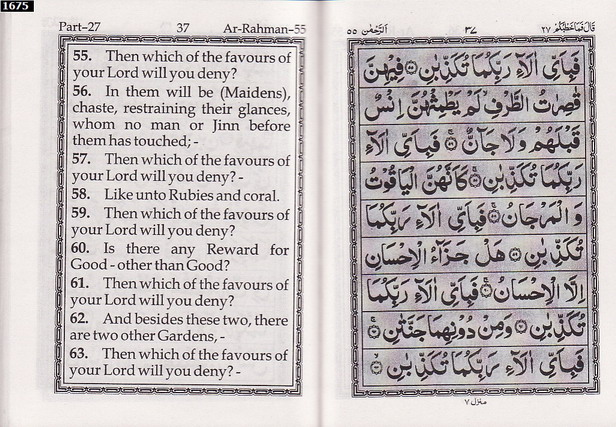 1675
Part-27 37 Ar-Rahman-55
55. Then which of the favours of
your Lord will you deny?
56. In them will be (Maidens),
chaste, restraining their glances,
whom no man or Jinn before
them has touched; -
57. Then which of the favours of
your Lord will you deny? -
58. Like unto Rubies and coral.
59. Then which of the favours of
your Lord will you deny?
60. Is there any Reward for
Good - other than Good?
61. Then which of the favours of
your Lord will you deny?
62. And besides these two, there
are two other Gardens, -
63. Then which of the favours of
your Lord will you deny? -
قَالَ فَمَا خَطْبُكُمْ ٢٧ ٣٧ اَلرَّحْمٰن ٥٥
فَبِاَيِّ اٰلَآءِ رَبِّكُمَا تُكَذِّبٰنِ ۝٥٥ فِيْهِنَّ
قٰصِرٰتُ الطَّرْفِ لَمْ يَطْمِثْهُنَّ اِنْسٌ
قَبْلَهُمْ وَلَا جَآنٌّ ۝٥٦ فَبِاَيِّ اٰلَآءِ
رَبِّكُمَا تُكَذِّبٰنِ ۝٥٧ كَاَنَّهُنَّ الْيَاقُوْتُ
وَ الْمَرْجَانُ ۝٥٨ فَبِاَيِّ اٰلَآءِ رَبِّكُمَا
تُكَذِّبٰنِ ۝٥٩ هَلْ جَزَآءُ الْاِحْسَانِ
اِلَّا الْاِحْسَانُ ۝٦٠ فَبِاَيِّ اٰلَآءِ رَبِّكُمَا
تُكَذِّبٰنِ ۝٦١ وَمِنْ دُوْنِهِمَا جَنَّتٰنِ ۝٦٢
فَبِاَيِّ اٰلَآءِ رَبِّكُمَا تُكَذِّبٰنِ ۝٦٣
منزل ٧